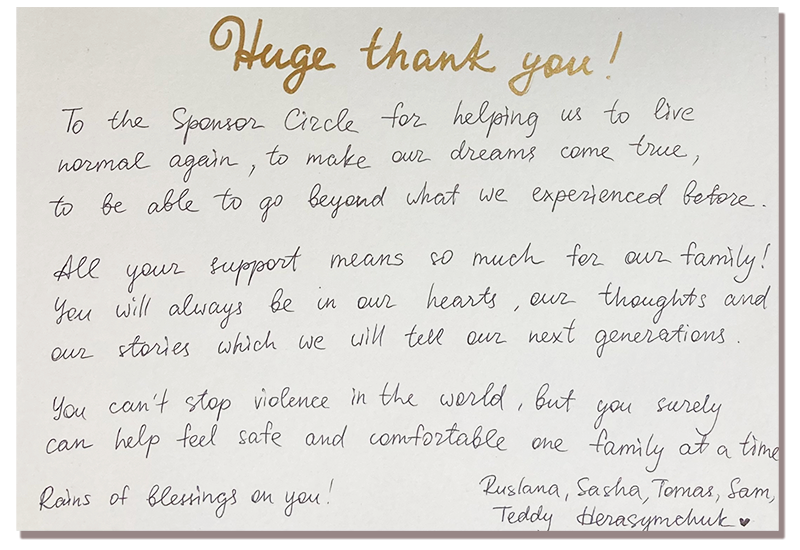 Huge thank you!
To the Sponsor Circle for helping us to live
normal again, to make our dreams come true,
to be able to go beyond what we experienced before.
All your support means so much for our family!
You will always be in our hearts, our thoughts and
our stories which we will tell our next generations.
You can't stop violence in the world, but you surely
can help feel safe and comfortable one family at a time
Rains of blessings on you!
Ruslana, Sasha, Tomas, Sam,
Teddy Herasymchuk ♥